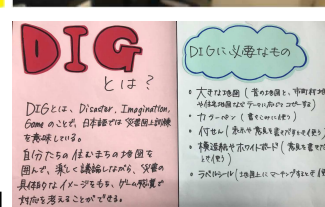 DIG
とは？
DIGとは、Disaster, Imagination,
Gameのことで、日本語では災害図上訓練
を意味している。
自分たちの住むまちの地図を
囲んで、楽しく議論しながら、災害の
具体的なイメージをもち、ゲーム感覚で
対応を考えることができる。
DIGに必要なもの
・大きな地図（昔の地図と、市町村地
・カラーペン（書きこみに使う）
・付せん（表示や意見を書きだすとき使う）
・模造紙やホワイトボード（意見を書きだ
とき使う）
・ラベルシール（地図上にマーキングするとき使